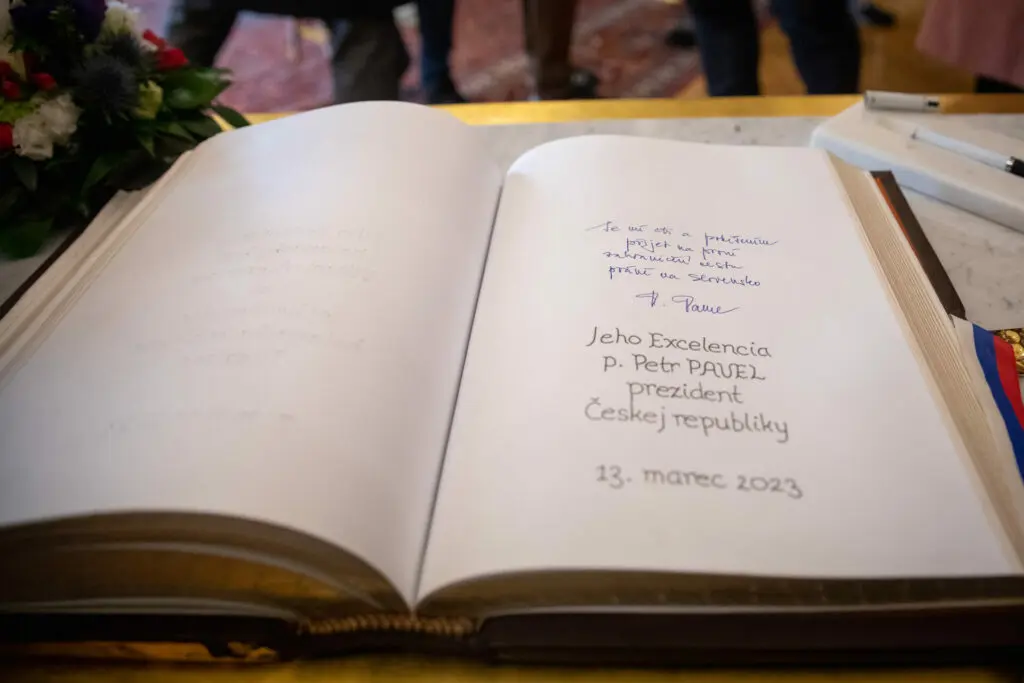 Je mi ctí a potěšením
přijet na první
zahraniční cestu
právě na Slovensko
P. Pavel
Jeho Excelencia
p. Petr PAVEL
prezident
Českej republiky
13. marec 2023